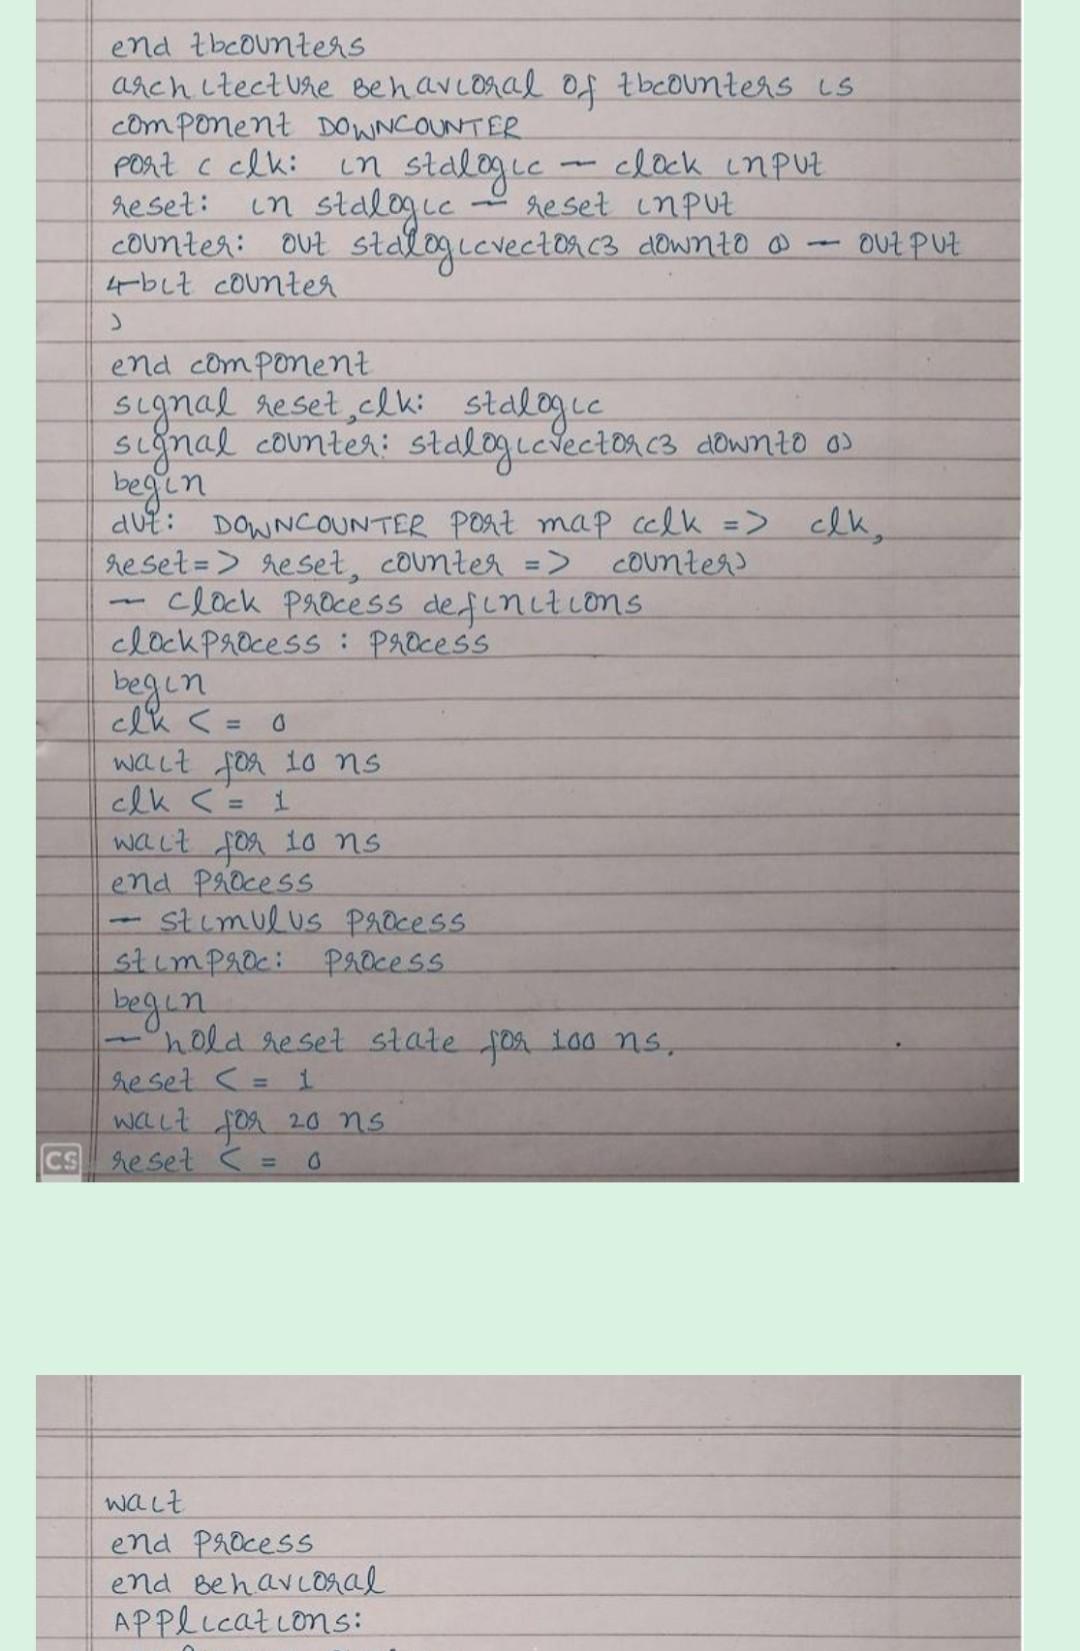 end tbcounters
architecture Behavioral of tbcounters is
component DOWNCOUNTER
port ( clk: in stdlogic — clock input
reset: in stdlogic — reset input
counter: out stdlogicvector(3 downto 0) — output
4-bit counter
)
end component
signal reset,clk: stdlogic
signal counter: stdlogicvector(3 downto 0)
begin
dut: DOWNCOUNTER port map (clk => clk,
reset=> reset, counter => counter)
— clock process definitions
clockprocess : process
begin
clk <= 0
wait for 10 ns
clk <= 1
wait for 10 ns
end process
— stimulus process
stimproc: process
begin
— hold reset state for 100 ns.
reset <= 1
wait for 20 ns
reset <= 0
CS
wait
end process
end Behavioral
Applications: